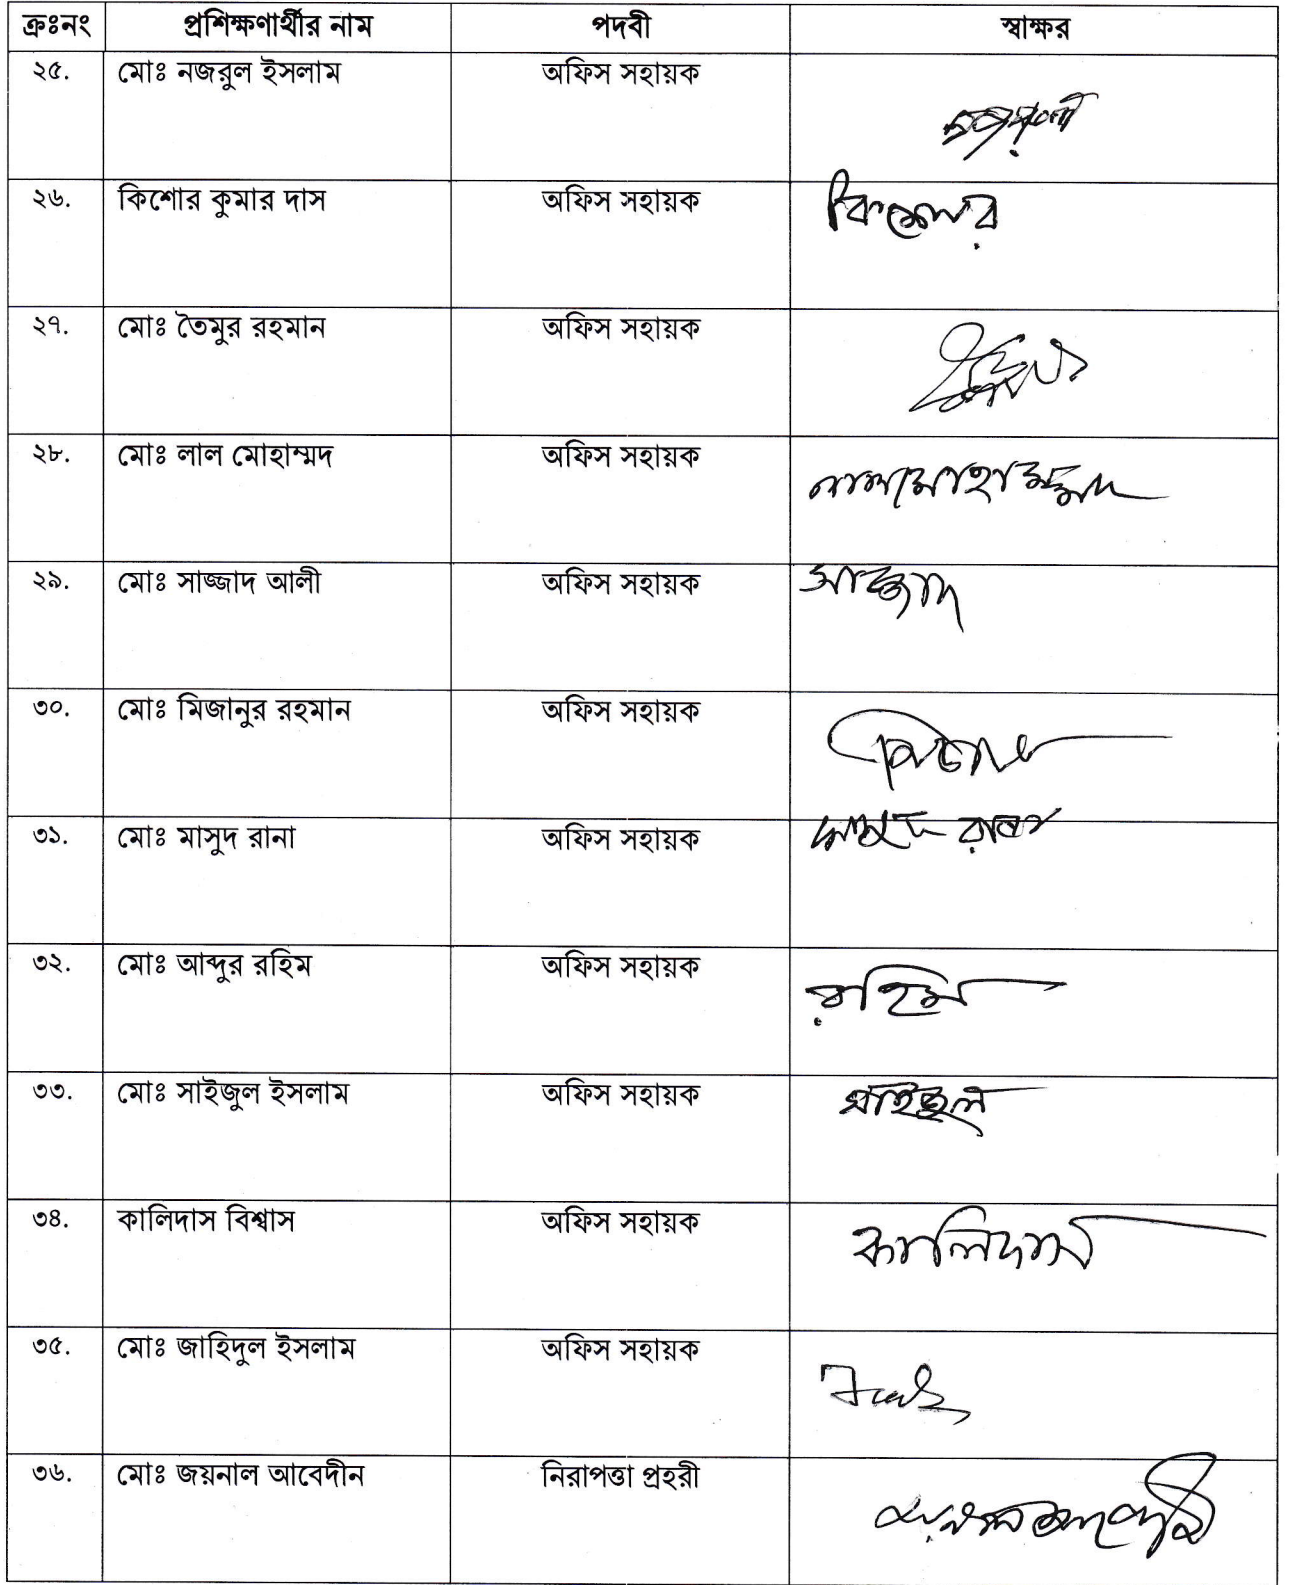 ক্রঃনং প্রশিক্ষণার্থীর নাম পদবী স্বাক্ষর
২৫. মোঃ নজরুল ইসলাম অফিস সহায়ক
২৬. কিশোর কুমার দাস অফিস সহায়ক কিশোর
২৭. মোঃ তৈমুর রহমান অফিস সহায়ক
২৮. মোঃ লাল মোহাম্মদ অফিস সহায়ক লালমোহাম্মদ
২৯. মোঃ সাজ্জাদ আলী অফিস সহায়ক সাজ্জাদ
৩০. মোঃ মিজানুর রহমান অফিস সহায়ক
৩১. মোঃ মাসুদ রানা অফিস সহায়ক মাসুদ রানা
৩২. মোঃ আব্দুর রহিম অফিস সহায়ক রহিম
৩৩. মোঃ সাইজুল ইসলাম অফিস সহায়ক সাইজুল
৩৪. কালিদাস বিশ্বাস অফিস সহায়ক কালিদাস
৩৫. মোঃ জাহিদুল ইসলাম অফিস সহায়ক
৩৬. মোঃ জয়নাল আবেদীন নিরাপত্তা প্রহরী